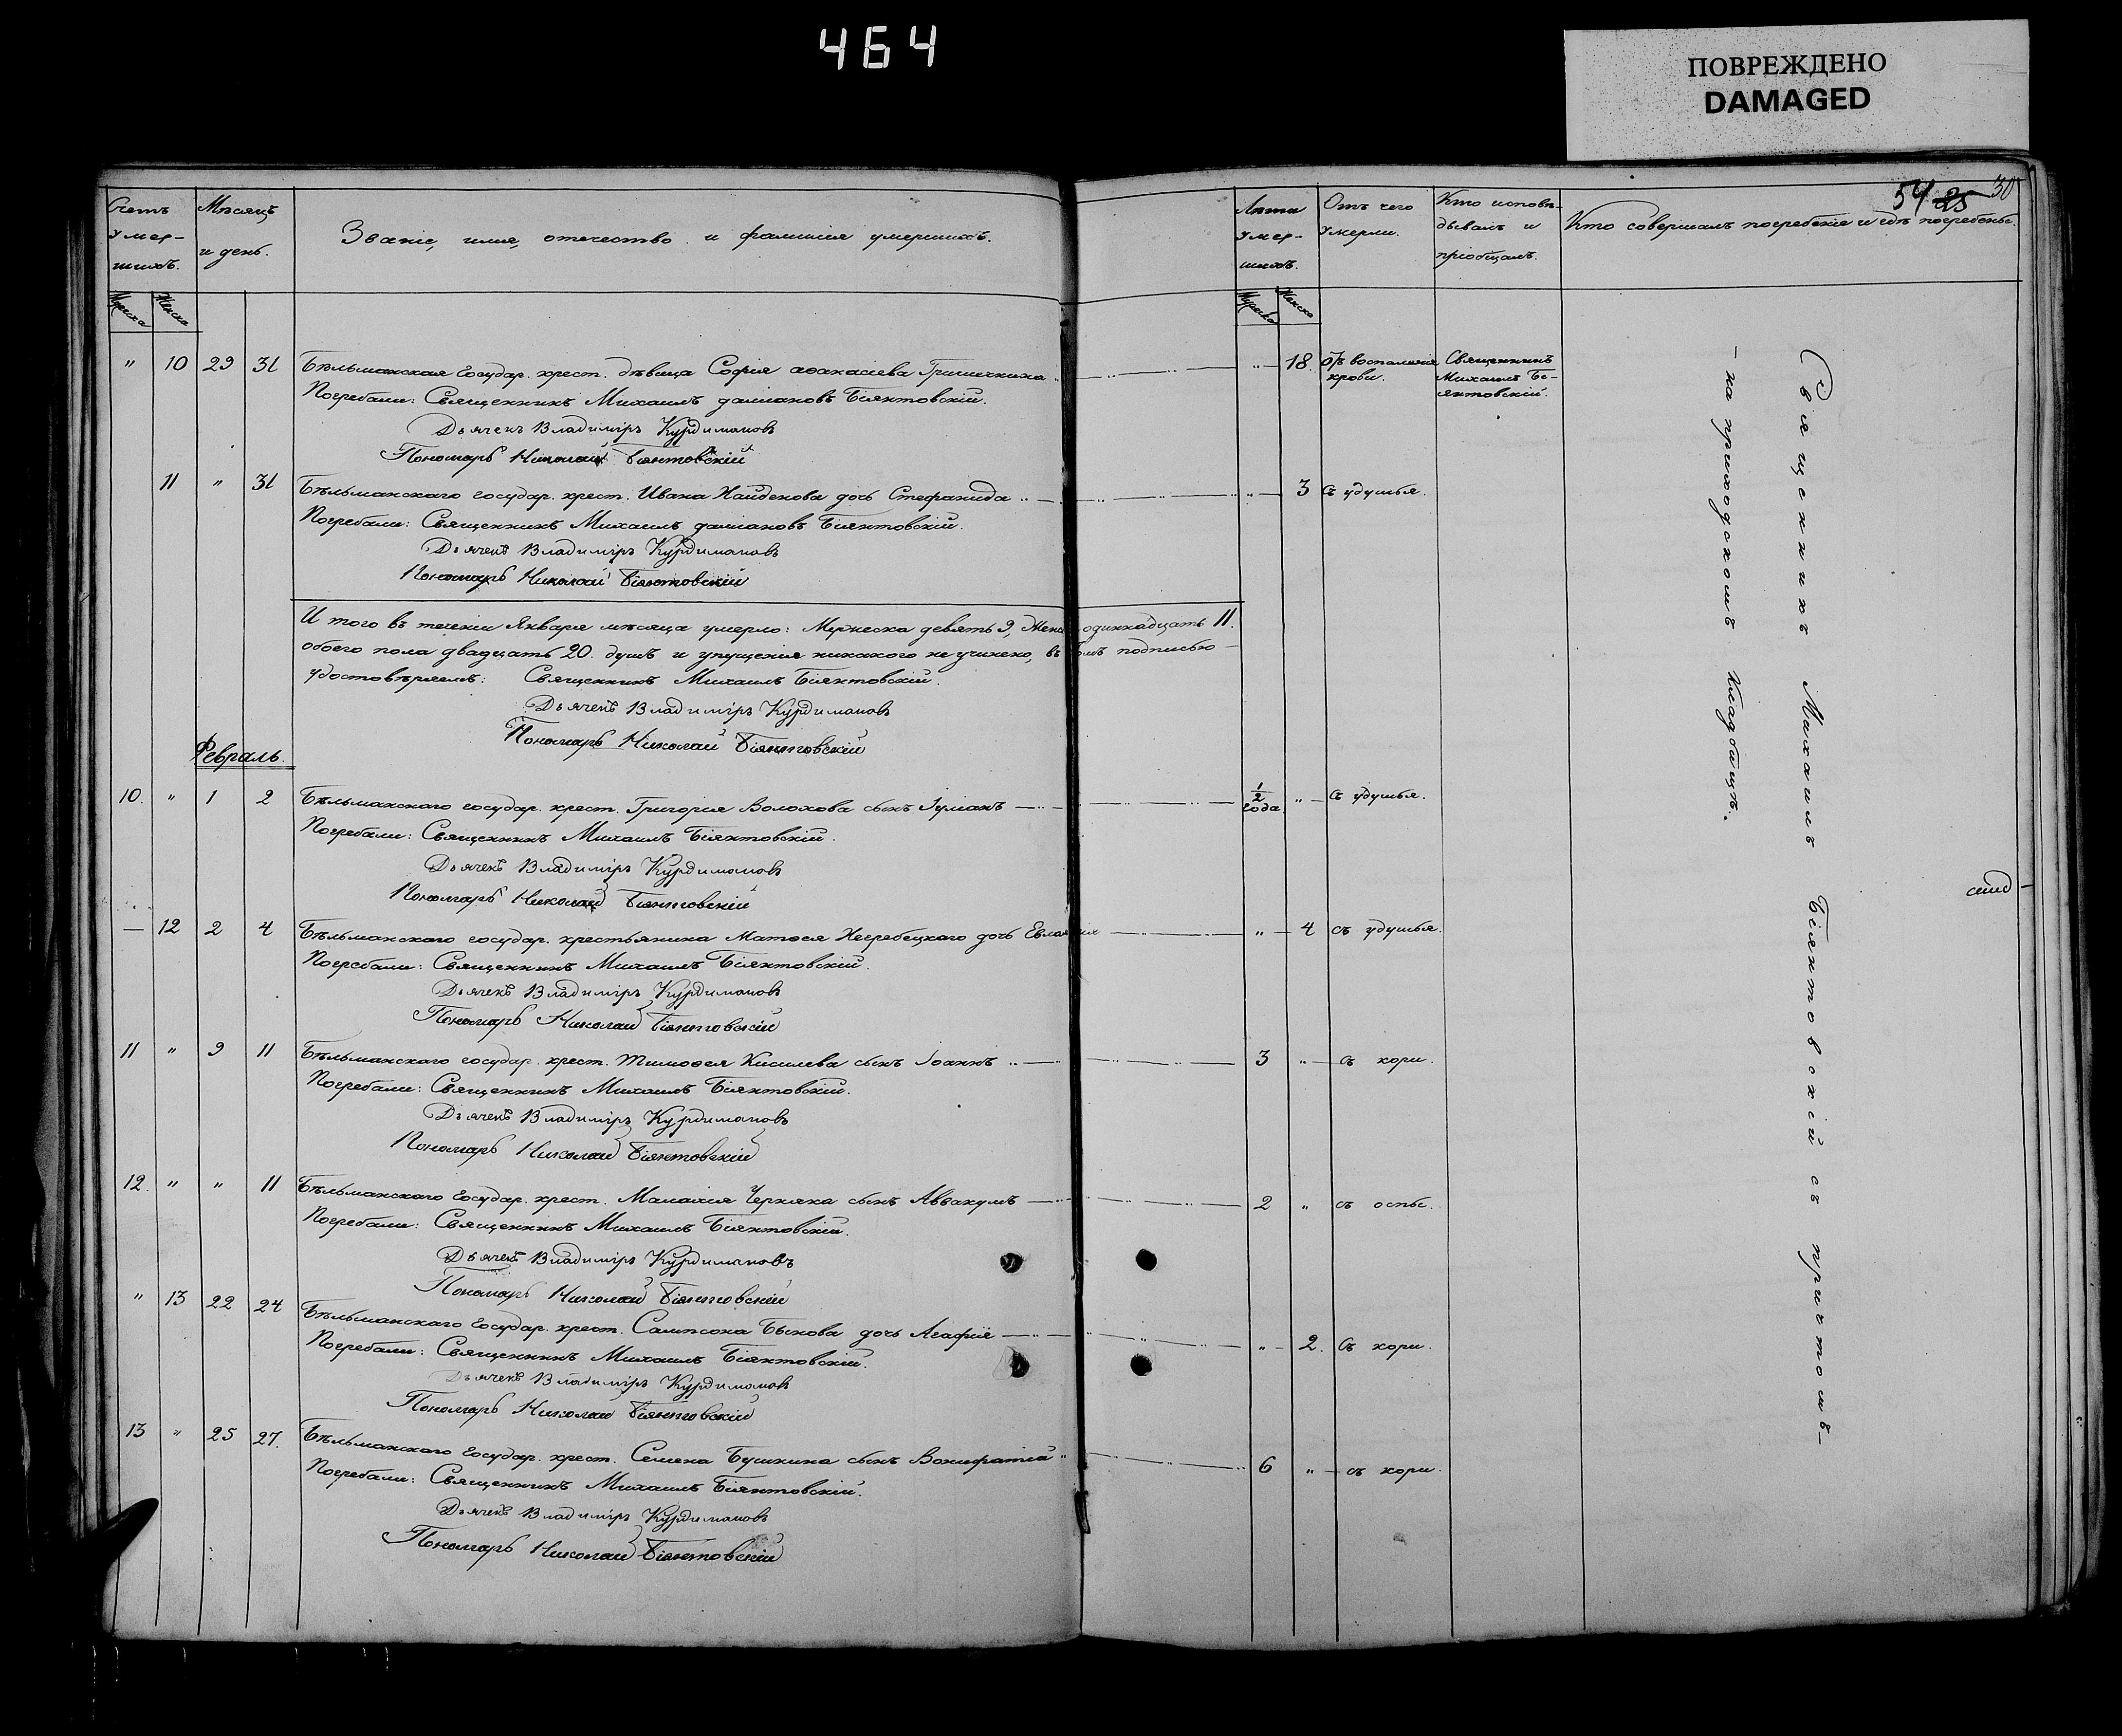 464
ПОВРЕЖДЕНО
DAMAGED
54 25 30
Счетъ умер-шихъ.
Мѣсяцъ и день.
Званіе, имя, отечество и фамилія умершихъ.
Лѣта умер-шихъ.
Отъ чего умерли.
Кто исповѣ-дывалъ и пріобщалъ.
Кто совершалъ погребеніе и гдѣ погребены.
Мужеска Женска
Мужеска Женска
" 10 29 31 Бѣльманская государ. крест. дѣвица Софія Аѳанасіева Гришечкина " — 18. Отъ воспаленія крови. Священникъ Михаилъ Бі-янтовскій.
Погребали: Священникъ Михаилъ Даміановъ Біянтовскій.
Дьячекъ Владиміръ Курдимановъ
Пономарь Николай Біянтовскій
11 " 31 Бѣльманскаго государ. крест. Ивана Найденова дочь Стефанида " — 3 Съ удушья.
Погребали: Священникъ Михаилъ Даміановъ Біянтовскій.
Дьячекъ Владиміръ Курдимановъ
Пономарь Николай Біянтовскій
И того въ теченіи Января мѣсяца умерло: Мужеска девять 9, Жен одиннадцать 11.
обоего пола двадцать 20. душъ и упущенія никакого не учинено, въ томъ подписью
удостовѣряемъ: Священникъ Михаилъ Біянтовскій.
Дьячекъ Владиміръ Курдимановъ
Пономарь Николай Біянтовскій
Февраль.
10. " 1 2 Бѣльманскаго государ. крест. Григорія Волохова сынъ Іуліанъ — 1/2 года " — Съ удушья.
Погребали: Священникъ Михаилъ Біянтовскій.
Дьячекъ Владиміръ Курдимановъ
Пономарь Николай Біянтовскій
— 12 2 4 Бѣльманскаго государ. крестьянина Матѳея Негребецкаго дочь — " — 4 съ удушья.
Погребали: Священникъ Михаилъ Біянтовскій.
Дьячекъ Владиміръ Курдимановъ
Пономарь Николай Біянтовскій
11 " 9 11 Бѣльманскаго государ. крест. Тимоѳея Кисилева сынъ Іоаннъ " — 3 " — съ кори.
Погребали: Священникъ Михаилъ Біянтовскій.
Дьячекъ Владиміръ Курдимановъ
Пономарь Николай Біянтовскій
12. " " 11 Бѣльманскаго государ. крест. Малахія Черняка сынъ Аввакумъ — 2 " съ оспы.
Погребали: Священникъ Михаилъ Біянтовскій.
Дьячекъ Владиміръ Курдимановъ
Пономарь Николай Біянтовскій
" 13 22 24 Бѣльманскаго государ. крест. Сампсона Быкова дочь Агафія — " — 2. Съ кори.
Погребали: Священникъ Михаилъ Біянтовскій.
Дьячекъ Владиміръ Курдимановъ
Пономарь Николай Біянтовскій
13 " 25 27. Бѣльманскаго государ. крест. Семена Бушкина сынъ Вонифатій " — 6 " — съ кори.
Погребали: Священникъ Михаилъ Біянтовскій.
Дьячекъ Владиміръ Курдимановъ
Пономарь Николай Біянтовскій
Священникъ Михаилъ Біянтовскій съ причтомъ —
— на приходскомъ кладбищѣ.